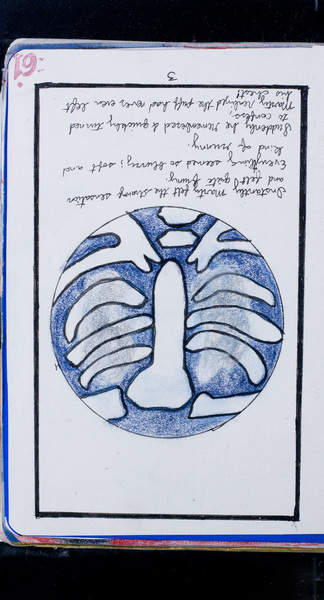 Instantly Marty felt the strange sensation
and felt quite funny.
Everything seemed so blurry; soft and
kind of runny.
Suddenly he remembered & quickly turned
to confess.
Marty realized the puff had never even left
his chest!
3
19